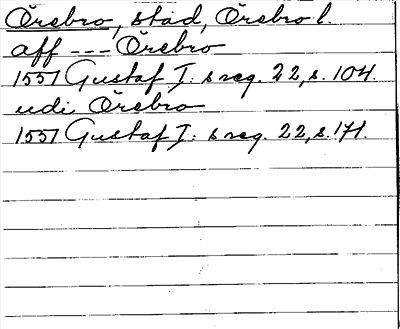 Örebro, stad, Örebro l.
aff --- Örebro
1557 Gustaf I: s reg. 22, s. 104.
udi Örebro
1557 Gustaf I: s reg. 22, s. 171.